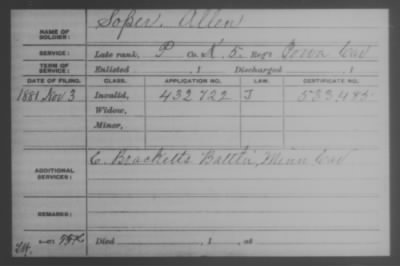 NAME OF SOLDIER: Soper, Allen
SERVICE: Late rank, P Co. K, 5. Reg't Iowa Cav
TERM OF SERVICE: Enlisted , 1 Discharged , 1
DATE OF FILING. CLASS. APPLICATION NO. LAW. CERTIFICATE NO.
1881 Nov 3 Invalid, 432722 J 533,485
Widow,
Minor,
ADDITIONAL SERVICES: C. Bracketts Battln, Minn Cav
REMARKS:
Died , 1 , at